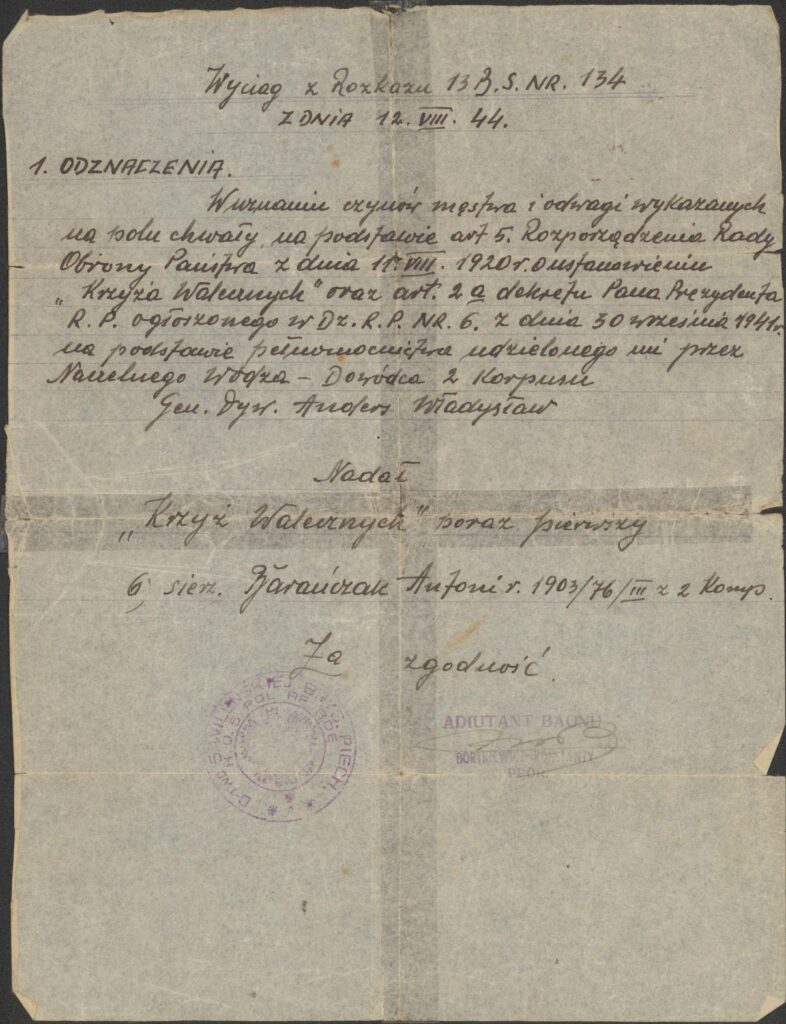 Wyciąg z Rozkazu 13 B.S. NR. 134
Z DNIA 12. VIII. 44.
1. ODZNACZENIA.
W uznaniu czynów męstwa i odwagi wykazanych
na polu chwały, na podstawie art 5. Rozporządzenia Rady
Obrony Państwa z dnia 11. VIII. 1920 r. o ustanowieniu
„Krzyża Walecznych" oraz art. 2 a dekretu Pana Prezydenta
R.P. ogłoszonego w Dz. R.P. NR. 6. z dnia 30 września 1941 r.
na podstawie pełnomocnictwa udzielonego mi przez
Naczelnego Wodza – Dowódca 2 Korpusu
Gen. Dyw. Anders Władysław
Nadał
„Krzyż Walecznych" poraz pierwszy
6, sierz. Barańczak Antoni r. 1903/76/III z 2 Komp.
Za zgodność.
D-TWO 5 WILEŃSKIEJ BRYG. PIECH.
ADIUTANT BAONU
BORTKIEWICZ
PPOR.